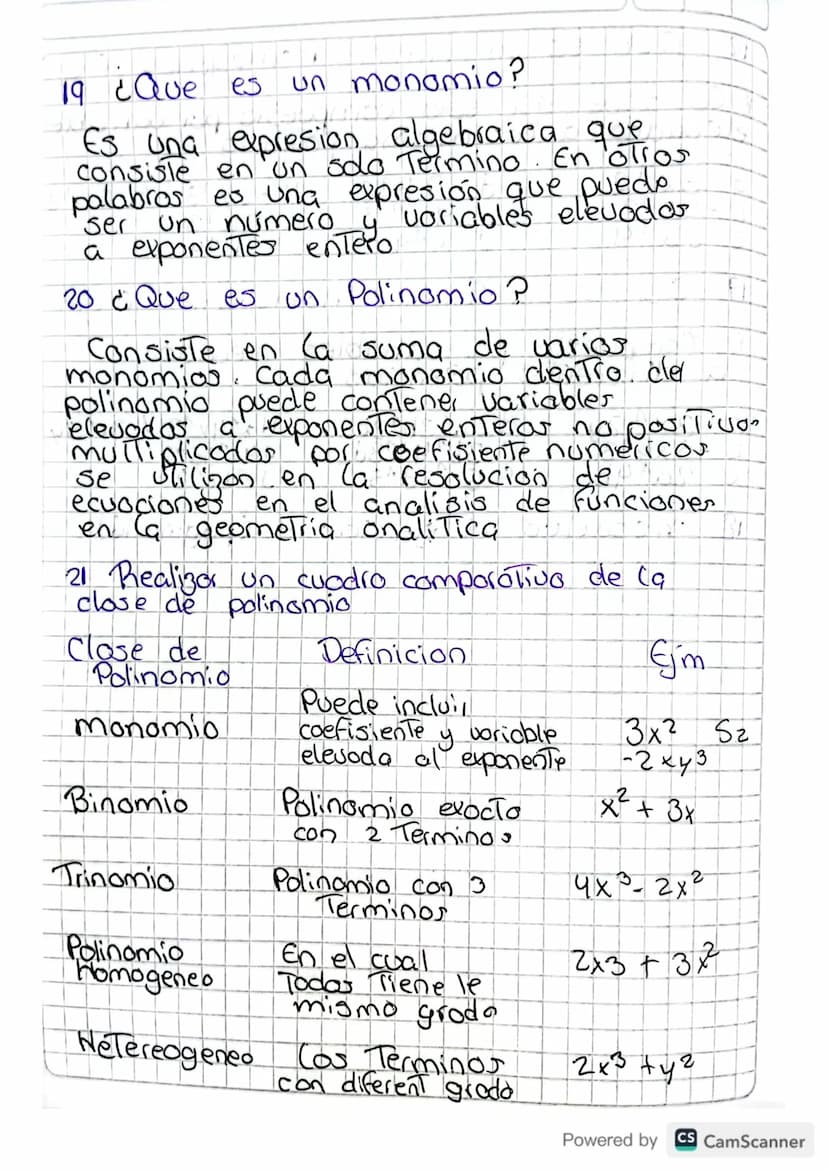 19 ¿Que es un monomio?
Es una expresión algebraica que
consiste en un solo Termino. En otros
palabras es una expresión que puede
ser un número y variables elevados
a exponentes entero
20 ¿Que es un Polinomio?
Consiste en la suma de varios
monomios. Cada monomio dentro del
polinomio puede contener variables
elevados a exponentes enteros no positivos
multiplicados por coefisiente numericos
se utilizan en la resolucion de
ecuaciones en el analisis de funciones
en la geometria analitica
21 Realizar un cuadro comparativo de la
clase de polinomio
Clase de Definicion Ejm
Polinomio
Puede incluir
monomio coefisiente y variable 3x² 5z
elevada al exponente -2xy³
Binomio Polinomio exacto x² + 3x
con 2 Terminos
Trinomio Polinomio con 3 4x³- 2x²
Terminos
Polinomio En el cual 2x3 + 3x²
Homogeneo Todos Tiene le
mismo grado
Hetereogeneo Los Terminos 2x³ +y²
con diferent grado
Powered by CS CamScanner